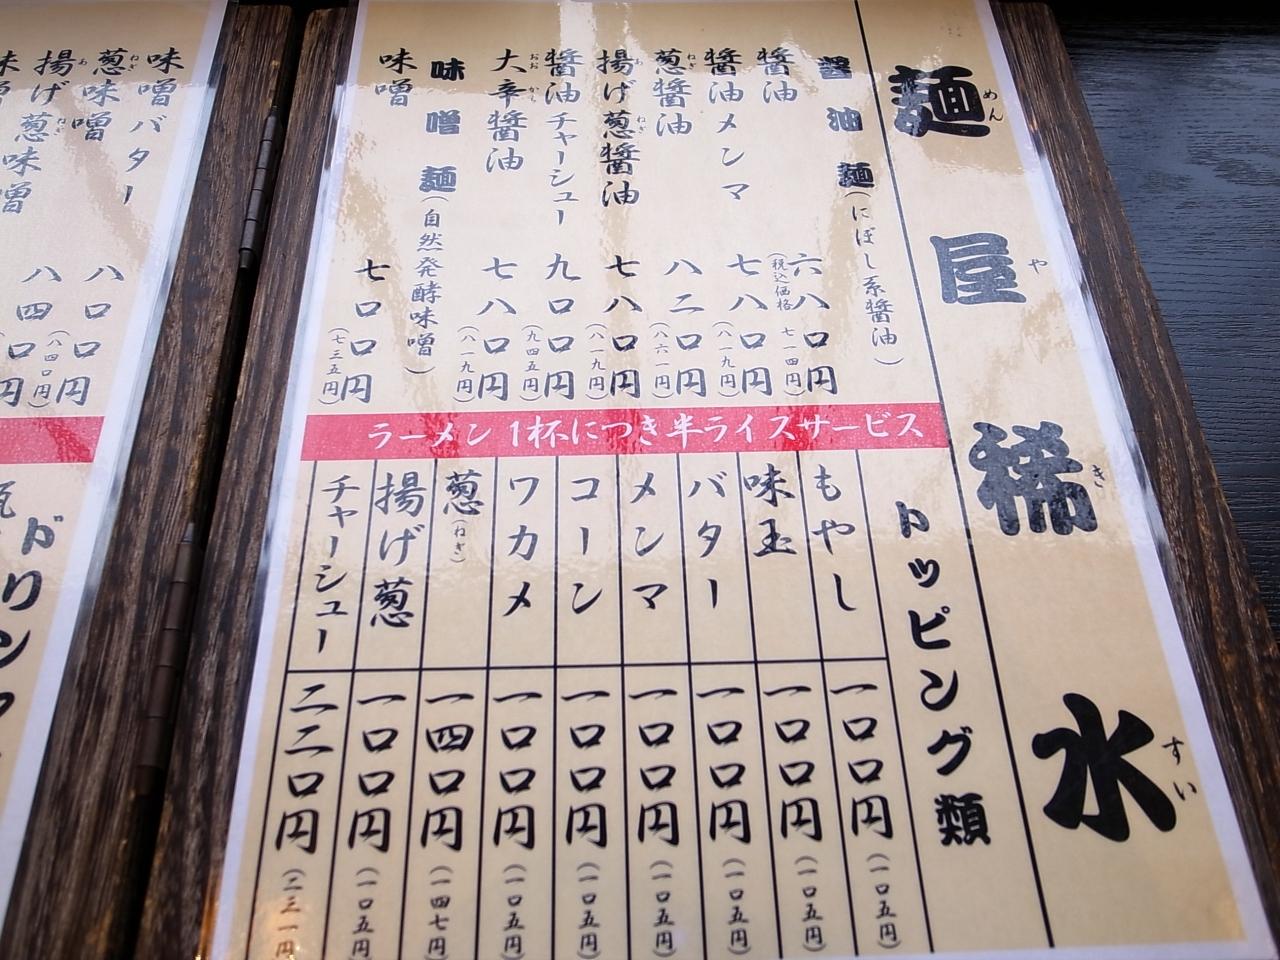 麺屋 稀水
めん や き すい
醤油麺(にぼし系醤油)
醤油 六八〇円
(税込価格 七一四円)
醤油メンマ 七八〇円
(八一九円)
葱醤油 八二〇円
ねぎ
(八六一円)
揚げ葱醤油 七八〇円
あ ねぎ
(八一九円)
醤油チャーシュー 九〇〇円
(九四五円)
大辛醤油 七八〇円
おお から
(八一九円)
味噌麺(自然発酵味噌)
味噌 七〇〇円
(七三五円)
ラーメン1杯につき半ライスサービス
トッピング類
もやし 一〇〇円(一〇五円)
味玉 一〇〇円(一〇五円)
バター 一〇〇円(一〇五円)
メンマ 一〇〇円(一〇五円)
コーン 一〇〇円(一〇五円)
ワカメ 一〇〇円(一〇五円)
葱(ねぎ) 一四〇円(一四七円)
揚げ葱 一〇〇円(一〇五円)
チャーシュー 二二〇円(二三一円
味噌バター 八〇〇円
(八四〇円)
葱味噌 八四〇円
ねぎ
揚げ葱味噌
あ ねぎ
ドリン
瓶